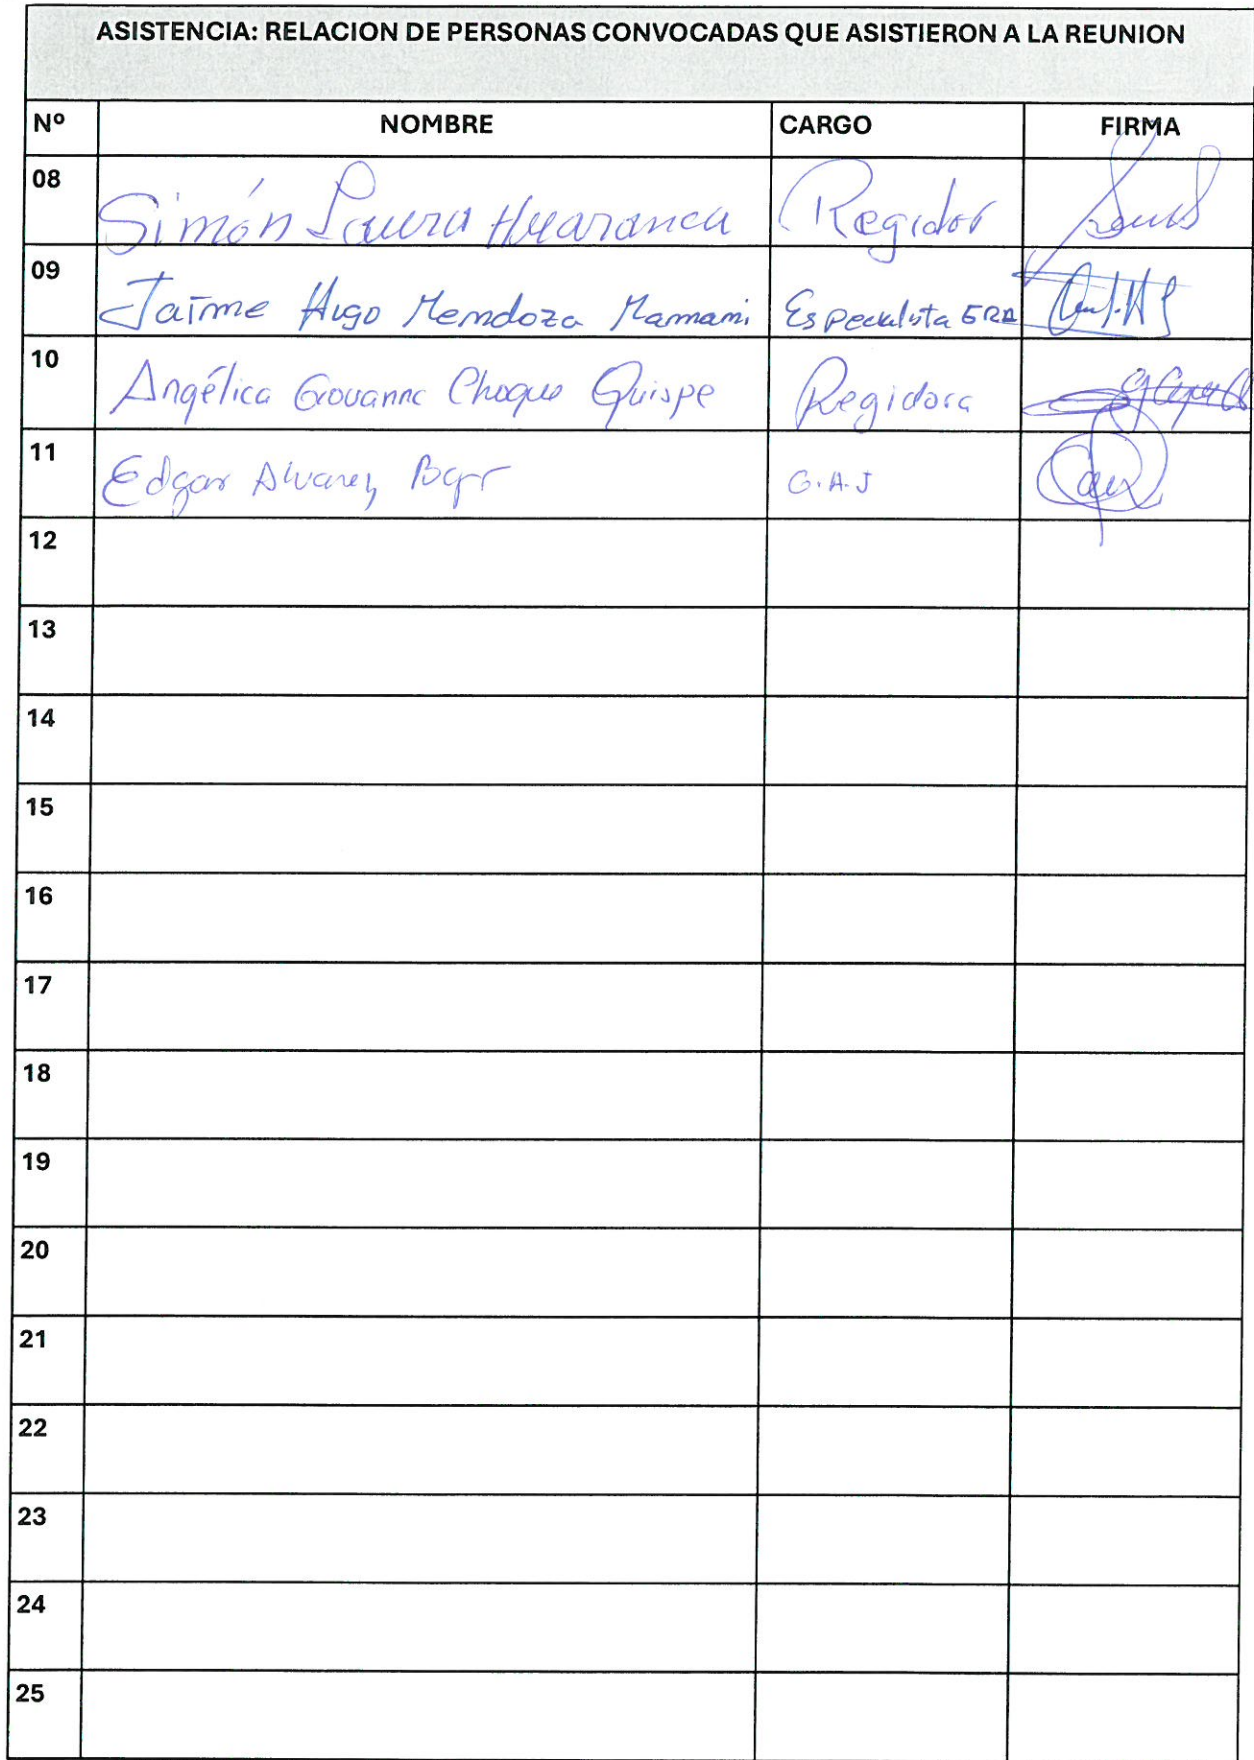 ASISTENCIA: RELACION DE PERSONAS CONVOCADAS QUE ASISTIERON A LA REUNION
Nº NOMBRE CARGO FIRMA
08 Simón Laura Huaranca Regidor
09 Jaime Hugo Mendoza Mamani Especialista
10 Angélica Giovanna Choque Quispe Regidora
11 Edgar Alvarez G.A.J
12
13
14
15
16
17
18
19
20
21
22
23
24
25